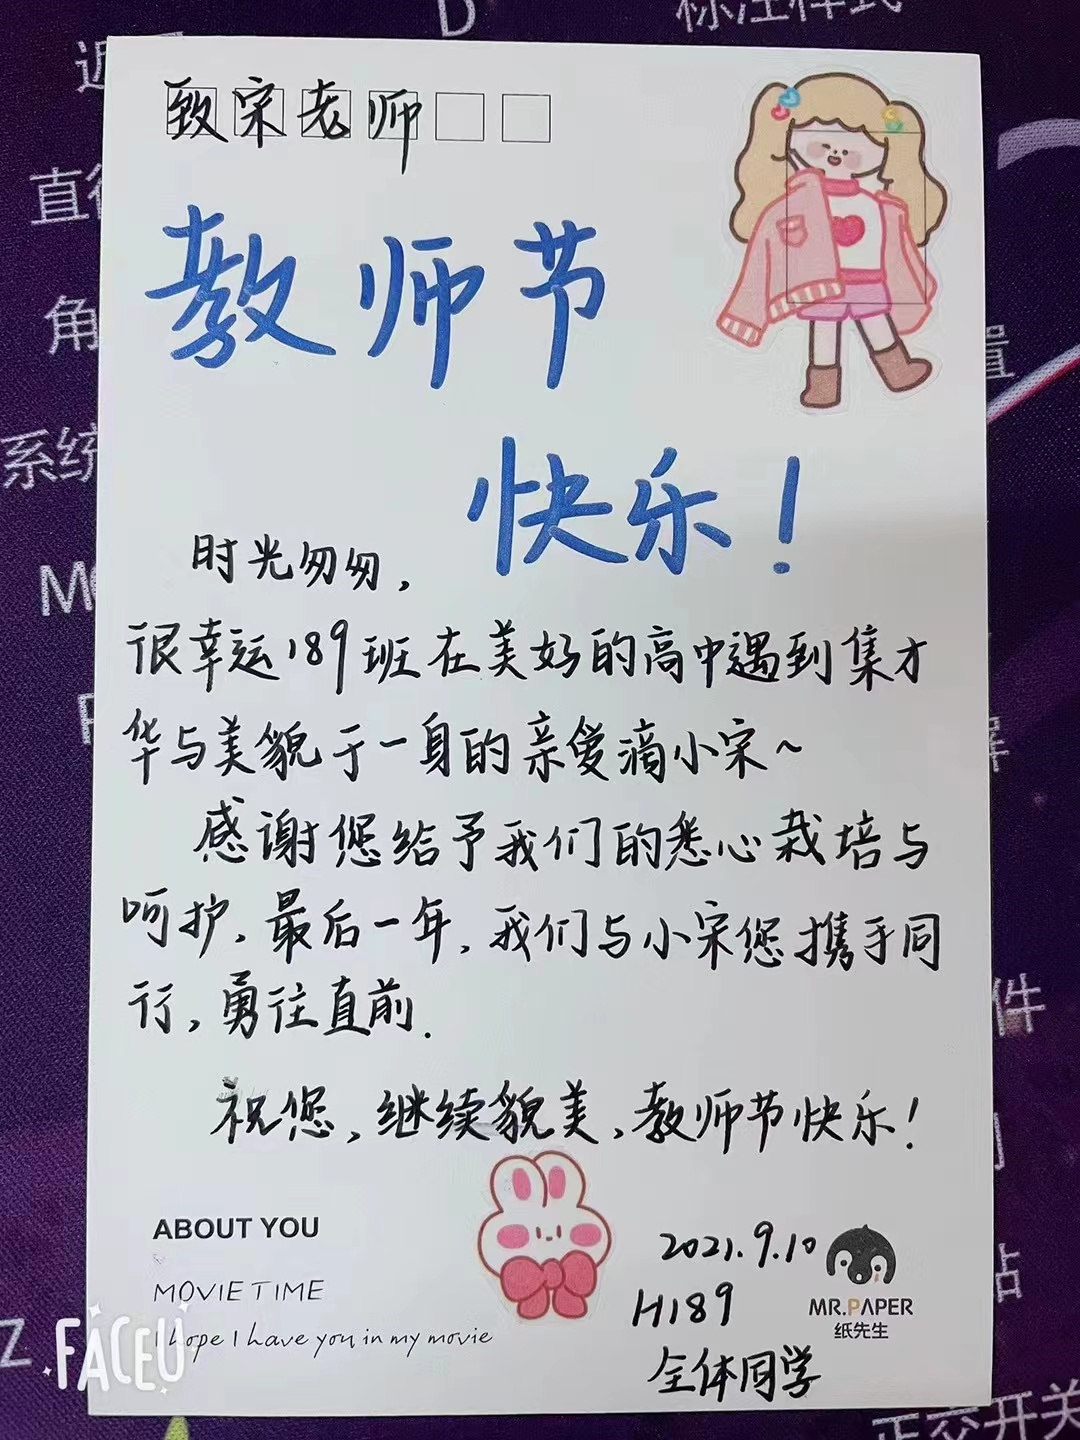 D
标注样式
致宋老师
直径
角
教师节
置
系统
快乐！
时光匆匆，
很幸运189班在美好的高中遇到集才
华与美貌于一身的亲爱滴小宋~
感谢您给予我们的悉心栽培与
呵护，最后一年，我们与小宋您携手同
行，勇往直前.
件
祝您，继续貌美，教师节快乐！
ABOUT YOU
MOVIE TIME
I hope I have you in my movie
2021.9.10
H189
全体同学
MR.PAPER
纸先生
站
Z
FACEU
正交开关